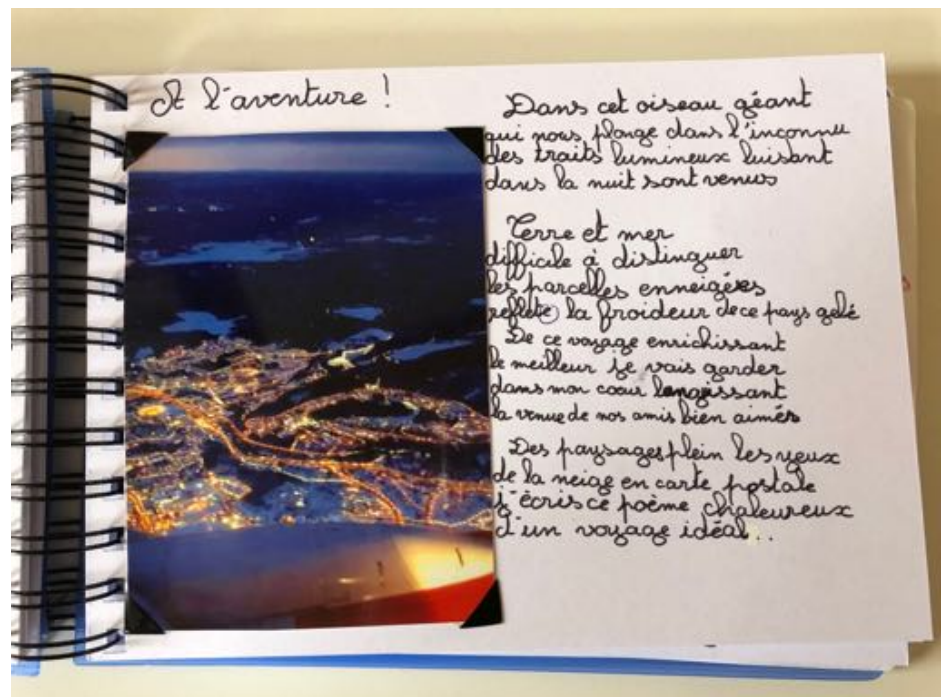 A l'aventure !
Dans cet oiseau géant
qui nous plonge dans l'inconnu
des traits lumineux luisant
dans la nuit sont venus
Terre et mer
difficile à distinguer
les parcelles enneigées
reflète la froideur de ce pays gelé
De ce voyage enrichissant
le meilleur je vais garder
dans mon cœur languissant
la venue de nos amis bien aimés
Des paysages plein les yeux
de la neige en carte postale
j'écris ce poème chaleureux
d'un voyage idéal...